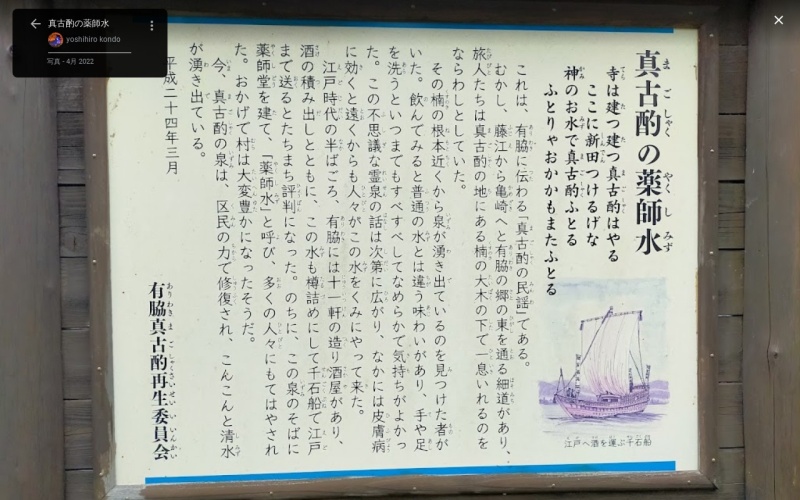 真古酌の薬師水
yoshihiro kondo
写真 - 4月 2022
真古酌の薬師水
寺は建つ建つ真古酌はやる
ここに新田つけるげな
神のお水で真古酌ふとる
ふとりゃおかかもまたふとる
これは、有脇に伝わる「真古酌の民謡」である。
むかし、藤江から亀崎へと有脇の郷の東を通る細道があり、
旅人たちは真古酌の地にある楠の大木の下で一息いれるのを
ならわしとしていた。
その楠の根本近くから泉が湧き出ているのを見つけた者が
いた。飲んでみると普通の水とは違う味わいがあり、手や足
を洗うといつまでもすべすべしてなめらかで気持ちがよかっ
た。この不思議な霊泉の話は次第に広がり、なかには皮膚病
に効くと遠くからも人々がこの水をくみにやって来た。
江戸時代の半ばごろ、有脇には十一軒の造り酒屋があり、
酒の積み出しとともに、この水も樽詰めにして千石船で江戸
まで送るとたちまち評判になった。のちに、この泉のそばに
薬師堂を建て、「薬師水」と呼び、多くの人々にもてはやされ
た。おかげで村は大変豊かになったそうだ。
今、真古酌の泉は、区民の力で修復され、こんこんと清水
が湧き出ている。
平成二十四年三月
有脇真古酌再生委員会
江戸へ酒を運ぶ千石船